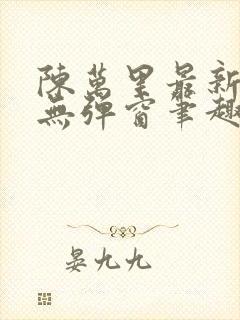 陳萬里最新
無彈窗筆趣
晏九九